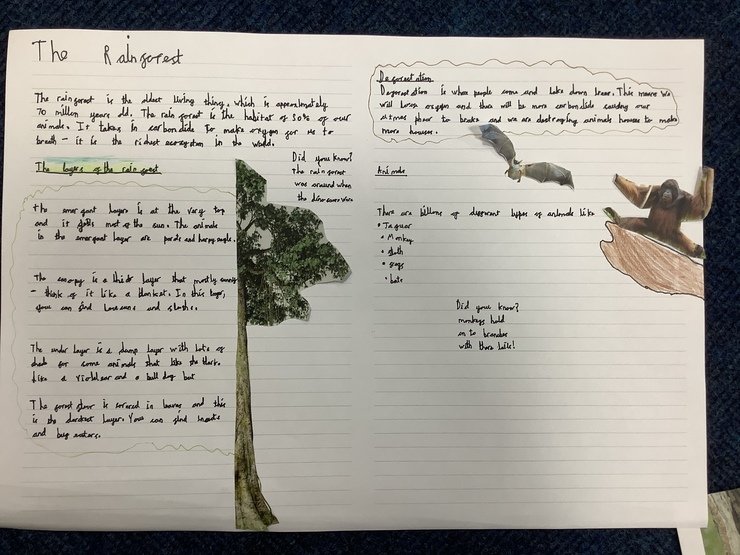 The Rainforest
The rainforest is the oldest living thing, which is approximately
70 million years old. The rainforest is the habitat of 50% of our
animals. It takes in carbondide to make oxygen for us to
breath - it is the richest ecosystem in the world.
The layers of the rainforest
Did you know?
The rainforest
was around when
the dinosaurs were
the emergant layers is at the very top
and it gets most of the sun. The animals
in the emergant layer are and harpy eagle.
The canopy is a thick layer that mostly
- think of it like a blanket. In this layer,
you can find and sloths.
The under layer is a damp layer with lots of
shade for some animals that like the dark.
Like a and a bull dog bat
The forest floor is covered in leaves and this
is the darkest layer. You can find insects
and bug eaters.
Deforestation
Deforestation is when people come and take down trees. This means we
will loose oxygen and there will be more carbondide causing our
atmos phear to brake and we are destroying animals houses to make
more houses.
Animals
There are billons of different types of animals like
• Jaguar
• Monkey
• sloth
• frogs
• bats
Did you know?
monkeys hold
on to branches
with there tails!